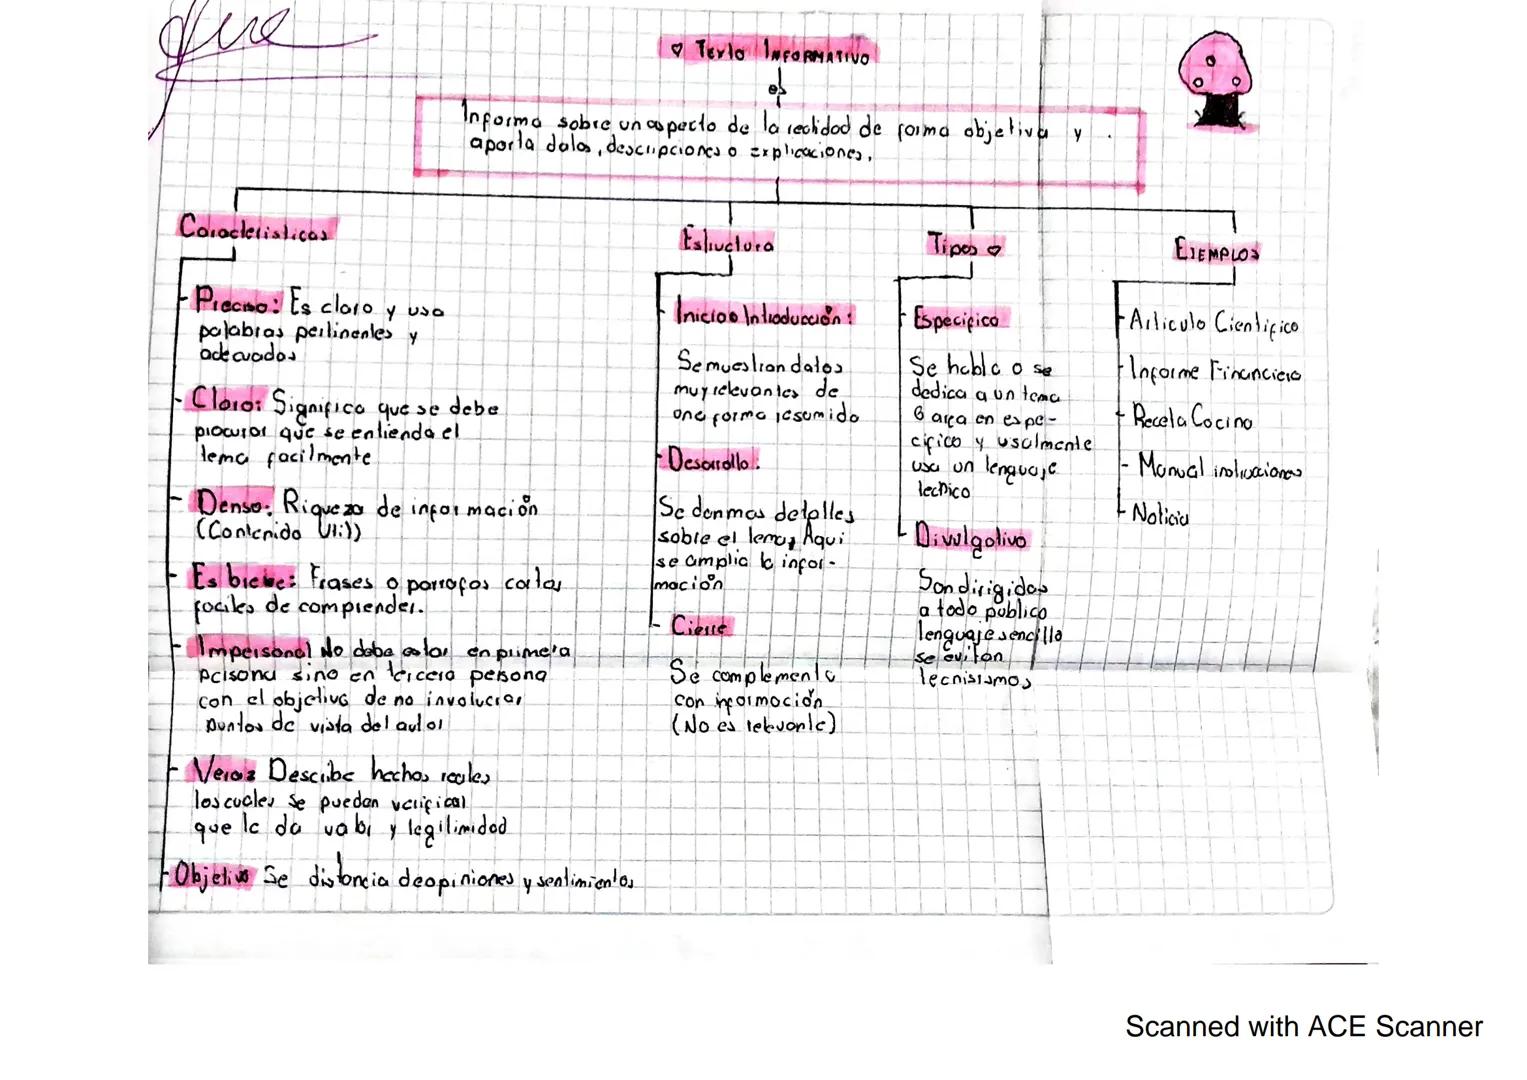 ♡ Texto INFORMATIVO
es
Informa sobre un aspecto de la realidad de forma objetiva y
aporta datos, descripciones o Explicaciones.
Características
Preciso: Es claro y usa
palabras pertinentes y
adecuadas
Claro: Significa que se debe
procurar que se entienda el
tema facilmente
Denso: Riqueza de información
(Contenido Util)
Es breve: Frases o parrafos cortas
faciles de comprender.
Impersonal No debe estar en primera
persona sino en tercera persona
con el objetivo de no involucrar
puntos de vista del autor
Veraz Describe hechos reales
los cuales se puedan verificar
que le da valor y legitimidad
Objetivo Se distancia de opiniones y sentimientos
Estructura
Inicio o Introducción:
Se muestran datos
muy relevantes de
una forma resumida
Desarrollo:
Se dan mas detalles
sobre el tema, Aqui
se amplia la infor-
mación
Cierre
Se complementa
con información
(No es relevante)
Tipos ♡
Especifico
Se habla o se
dedica a un tema
o area en espe-
cifico y usalmente
usa un lenguaje
tecnico
Divulgativo
Son dirigidos
a todo publico
lenguaje sencillo
se evitan
tecnisismos
EJEMPLOS
- Articulo Cientifico
- Informe Financiero
- Receta Cocina
- Manual instrucciones
- Noticia
Scanned with ACE Scanner